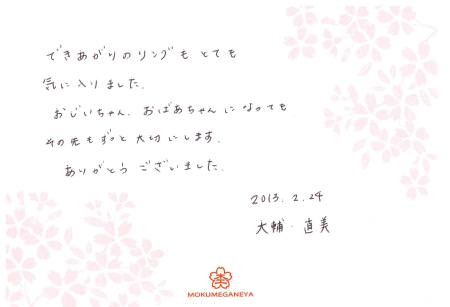 できあがりのリングも とても
気に入りました。
おじいちゃん、おばあちゃんになっても
その先もずっと大切にします。
ありがとうございました。
2013. 2. 24
大輔・直美
MOKUMEGANEYA